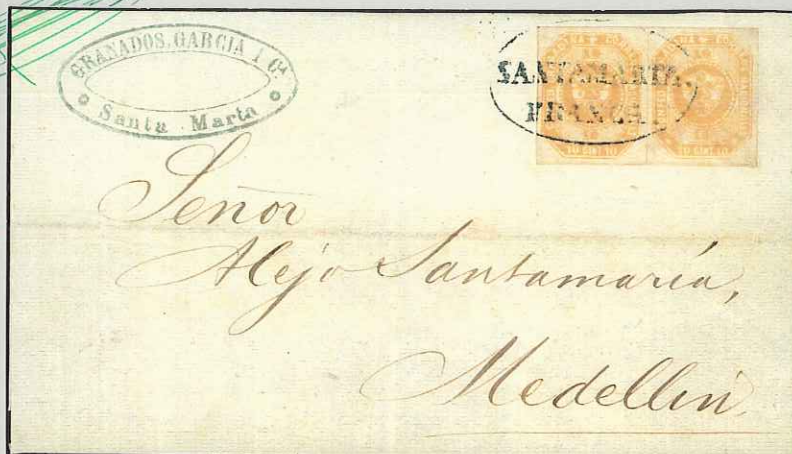 GRANADOS, GARCIA I Cª
Santa Marta
SANTAMARTA
FRANCA
10 CENT 10
10 CENT 10
Señor
Alejo Santamaría,
Medellin